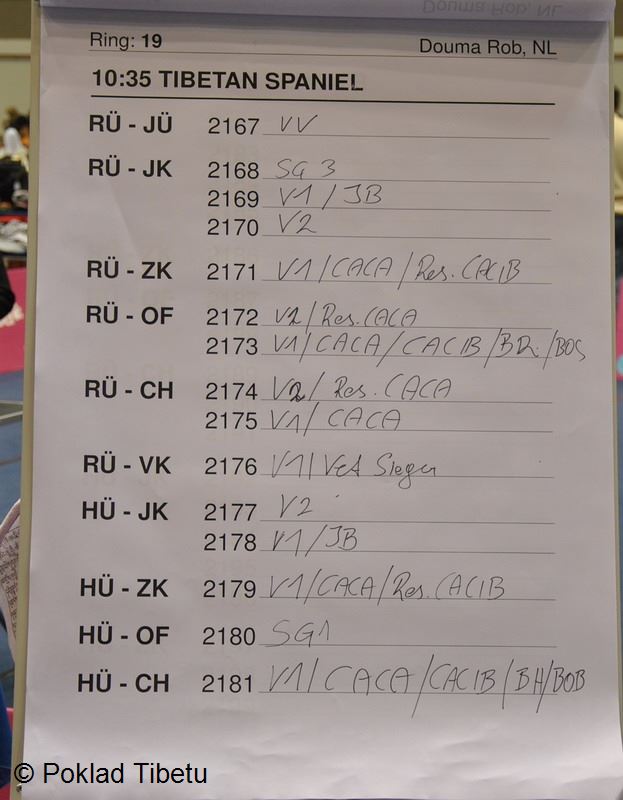 Ring: 19 Douma Rob, NL
10:35 TIBETAN SPANIEL
RÜ - JÜ 2167 VV
RÜ - JK 2168 SG 3
2169 V1 / JB
2170 V2
RÜ - ZK 2171 V1/CACA/Res. CACIB
RÜ - OF 2172 V2/Res. CACA
2173 V1/CACA/CACIB/BR./BOS
RÜ - CH 2174 V2/ Res. CACA
2175 V1/ CACA
RÜ - VK 2176 V1/Vet Sieger
HÜ - JK 2177 V2
2178 V1/JB
HÜ - ZK 2179 V1/CACA/Res. CACIB
HÜ - OF 2180 SG1
HÜ - CH 2181 V1/CACA/CACIB/BH/BOB
© Poklad Tibetu